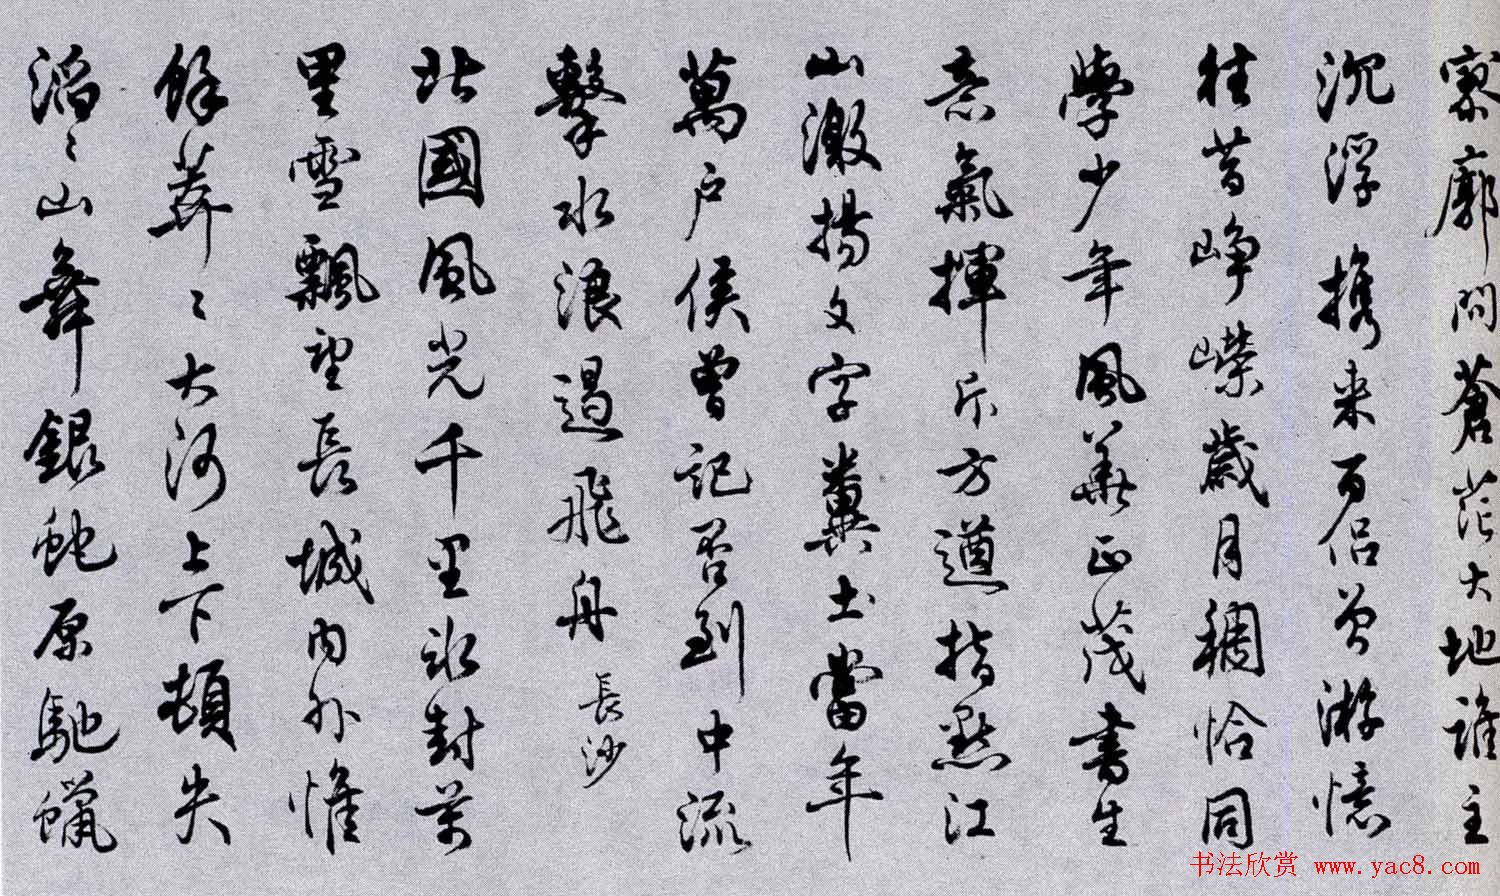 寥廓問蒼茫大地誰主
沉浮攜来百侣曾游憶
往昔崢嶸歲月稠恰同
學少年風華正茂書生
意氣揮斥方遒指點江
山激揚文字糞土當年
萬户侯曾記否到中流
擊水浪遏飛舟
長沙
北國風光千里冰封萬
里雪飄望長城内外惟
餘莽〻大河上下頓失
滔〻山舞銀蛇原馳蠟
书法欣赏 www.yac8.com